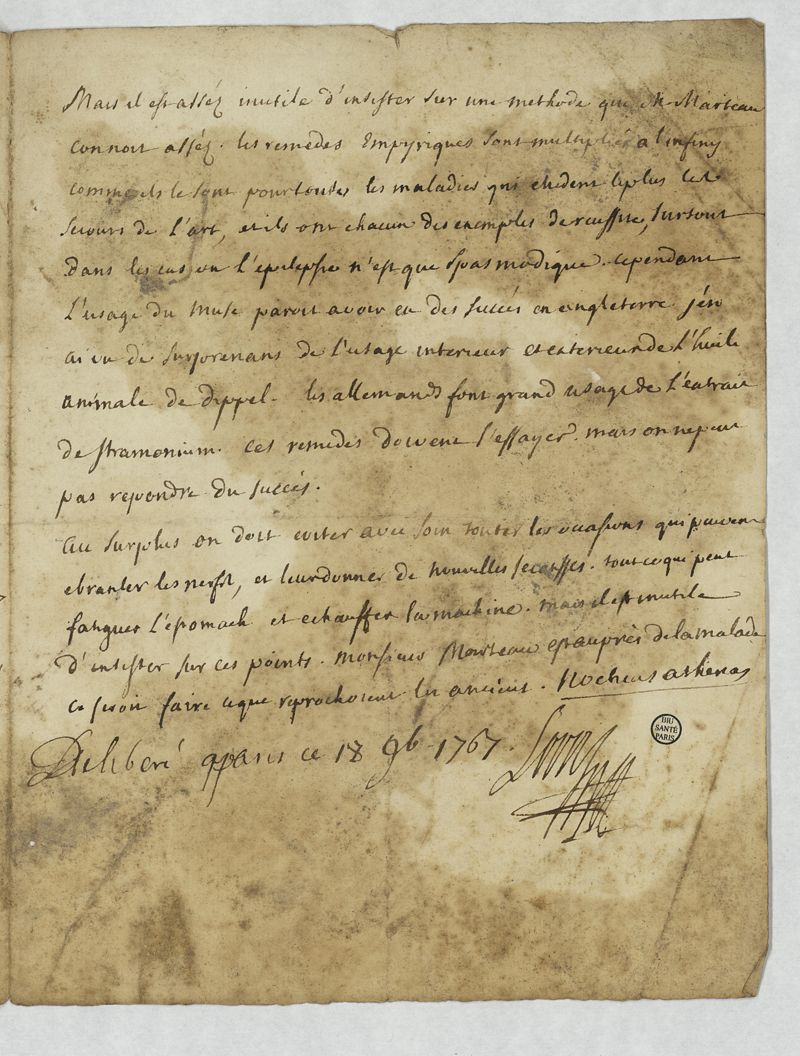 Mais il est asséz inutile d'insister sur une methode que M. Marteau
connoit asséz. les remedes Empyriques sont multipliés a l'infiny
comme ils le sont pour toutes les maladies qui eludent le plus les
secours de l'art, et ils ont chacun des exemples de reussite, surtout
dans les cas ou l'epilepsie n'est que spasmodique. cependant
l'usage du musc paroit avoir eu des succés en angleterre j'en
ai vu de surprenans de l'usage interieur et exterieur de l'huile
animale de dippel. les allemands font grand usage de l'extrait
de stramonium. ces remedes doivent s'essayer. mais on ne peut
pas repondre du succés.
au surplus on doit eviter avec soin toutes les occasions qui peuvent
ebranler les nerfs, et leur donner de nouvelles secousses. tout ce qui peut
fatiguer l'estomach et echauffer la machine. mais il est inutile
d'insister sur ces points. monsieur Marteau est auprès de la malade
ce seroit faire ce que reprochoient les anciens. noctuas athenas
Deliberé a paris ce 18 9b 1767. Lorry
BIU
SANTÉ
PARIS